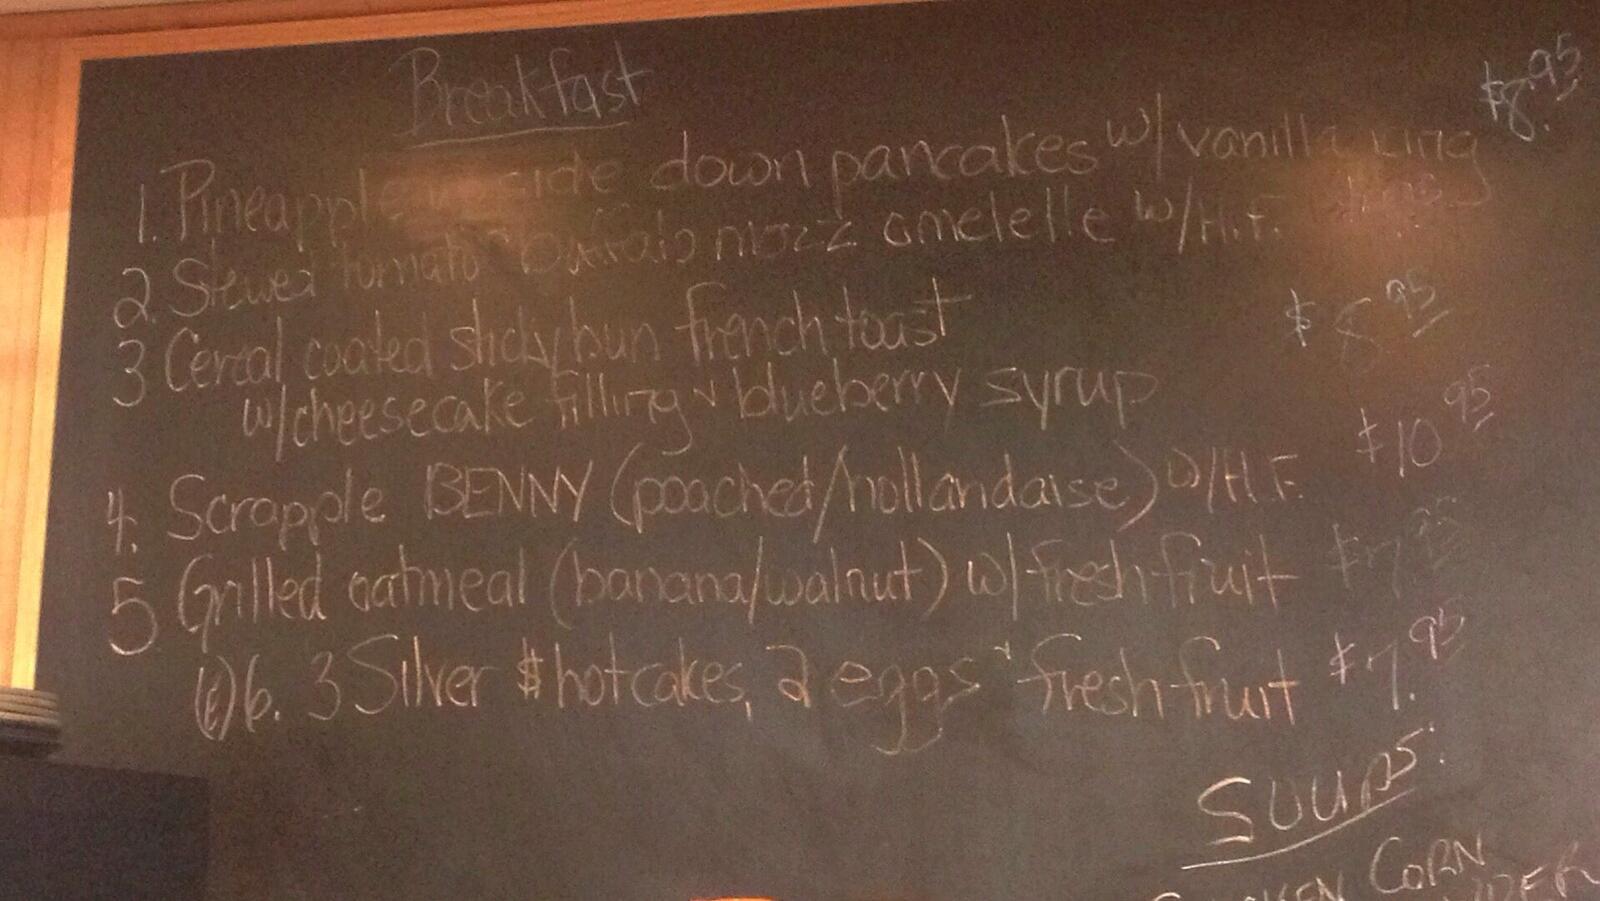 Breakfast
1. Pineapple side down pancakes w/ vanilla icing $8.95
2. Stewed tomato buffalo mozz omelelle w/H.F.
3 Cereal coated sticky bun french toast $8 95
w/cheesecake filling & blueberry syrup
4. Scrapple BENNY (poached/hollandaise) w/H.F. $10 95
5 Grilled oatmeal (banana/walnut) w/ fresh fruit $7.95
(6) 6. 3 Silver $ hotcakes, 2 eggs & fresh fruit $7.95
SOUPS:
CORN